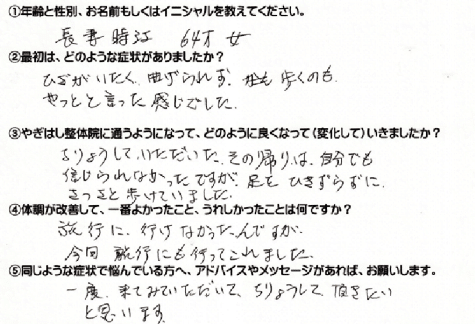 ①年齢と性別、お名前もしくはイニシャルを教えてください。
長妻時江 64才 女
②最初は、どのような症状がありましたか？
ひざがいたく、曲げられず、杖も歩くのも、
やっとと言った感じでした。
③やぎはし整体院に通うようになって、どのように良くなって(変化して)いきましたか？
ちりょうしていただいた、その帰りは、自分でも
信じられなかったですが、足をひきずらずに、
さっさと歩けていました。
④体調が改善して、一番よかったこと、うれしかったことは何ですか？
旅行に、行けなかったんですが、
今回 旅行にも行ってこれました。
⑤同じような症状で悩んでいる方へ、アドバイスやメッセージがあれば、お願いします。
一度、来てみていただいて、ちりょうして頂きたい
と思います。